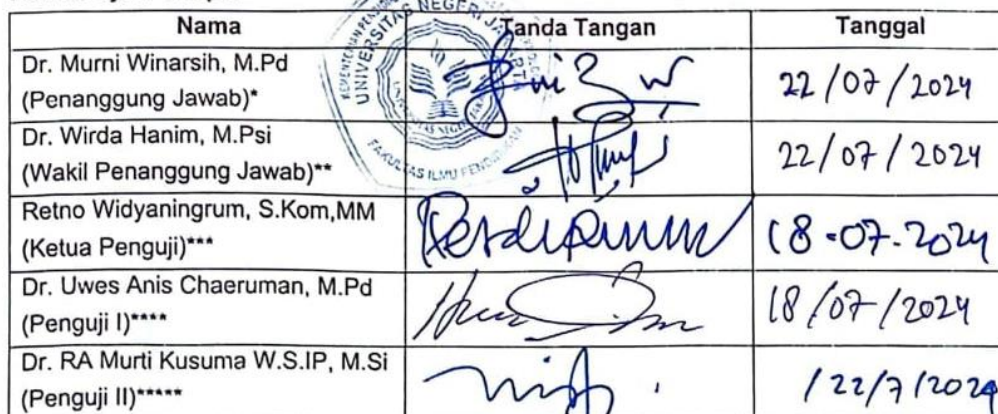 Nama Tanda Tangan Tanggal
Dr. Murni Winarsih, M.Pd
(Penanggung Jawab)* 22/07/2024
Dr. Wirda Hanim, M.Psi
(Wakil Penanggung Jawab)** 22/07/2024
Retno Widyaningrum, S.Kom,MM
(Ketua Penguji)*** 18-07-2024
Dr. Uwes Anis Chaeruman, M.Pd
(Penguji I)**** 18/07/2024
Dr. RA Murti Kusuma W.S.IP, M.Si
(Penguji II)***** /22/7/2024
UNIVERSITAS NEGERI
FAKULTAS ILMU